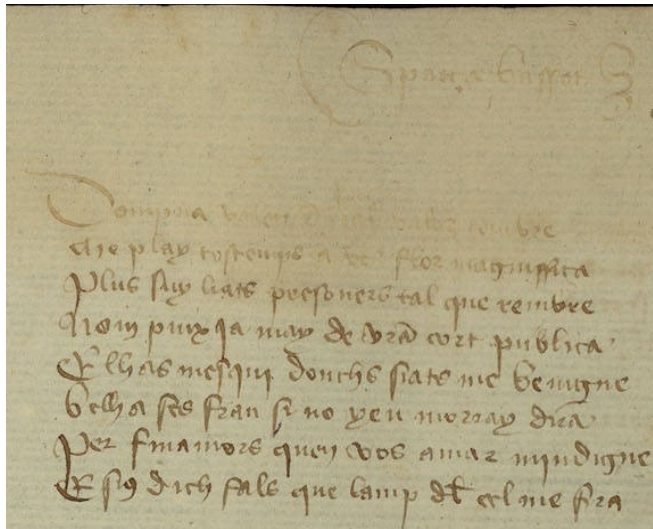 Sparça basset
Dompna valen
me play tostemps a vre flor magniffica
Plus suy liats presoners tal que reiure
Nom puix ja may de vra cort publica
E lhas mesqui donchs siats me benigne
belha ses fran si no yeu morray dira
Per finamors quen vos amar mindigne
E sius dich fals que lamp del cel me fira